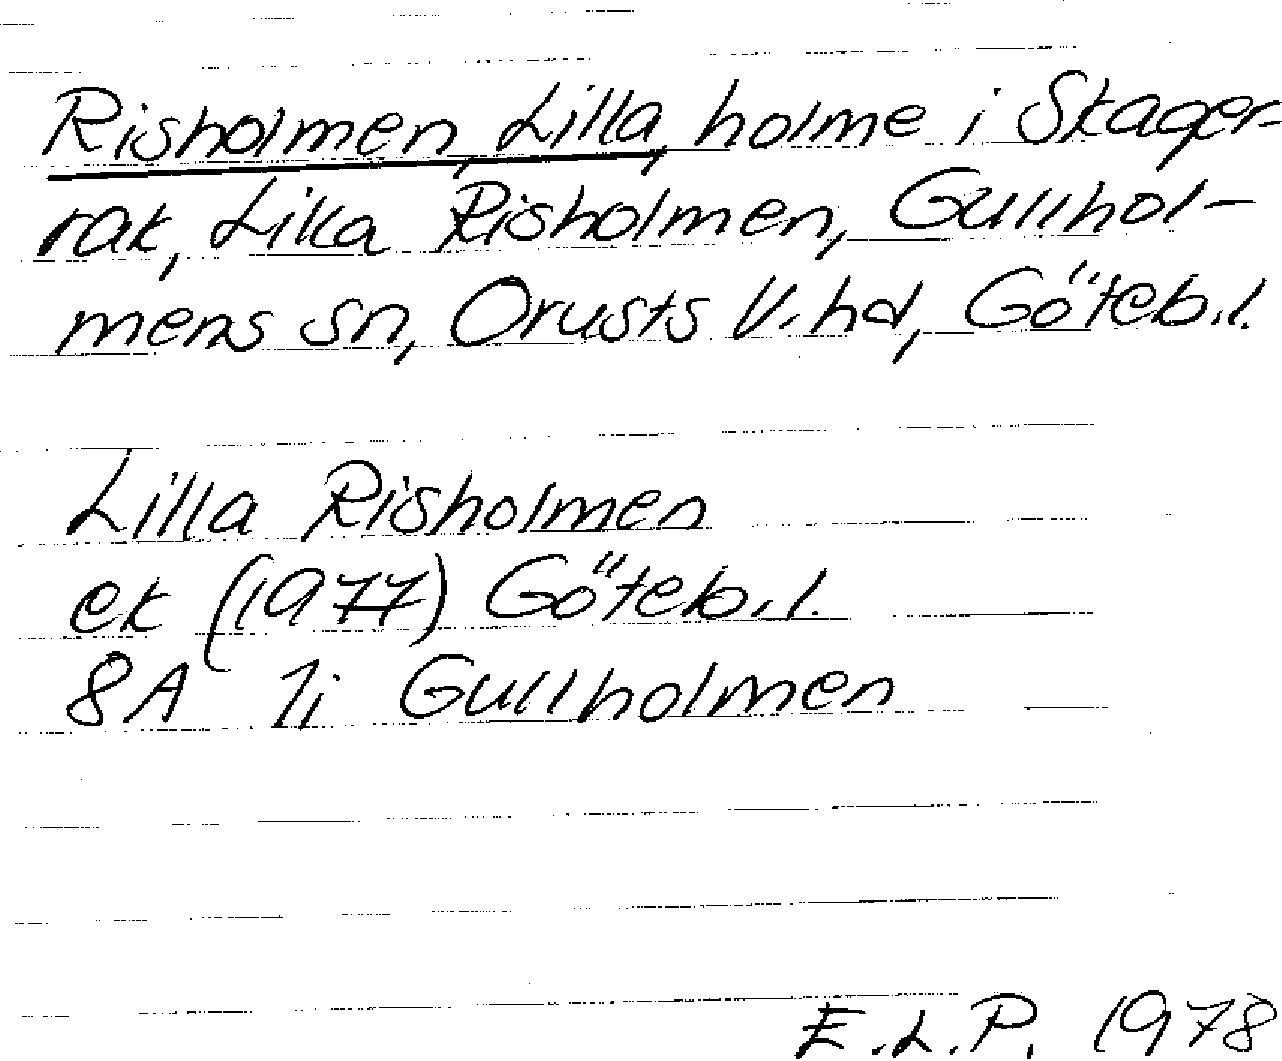 Risholmen, Lilla, holme i Skager-
rak, Lilla Risholmen, Gullhol-
mens sn, Orusts V. hd, Göteb. l.
Lilla Risholmen
ek (1977) Göteb. l.
8A 1i Gullholmen
E.L.P. 1978